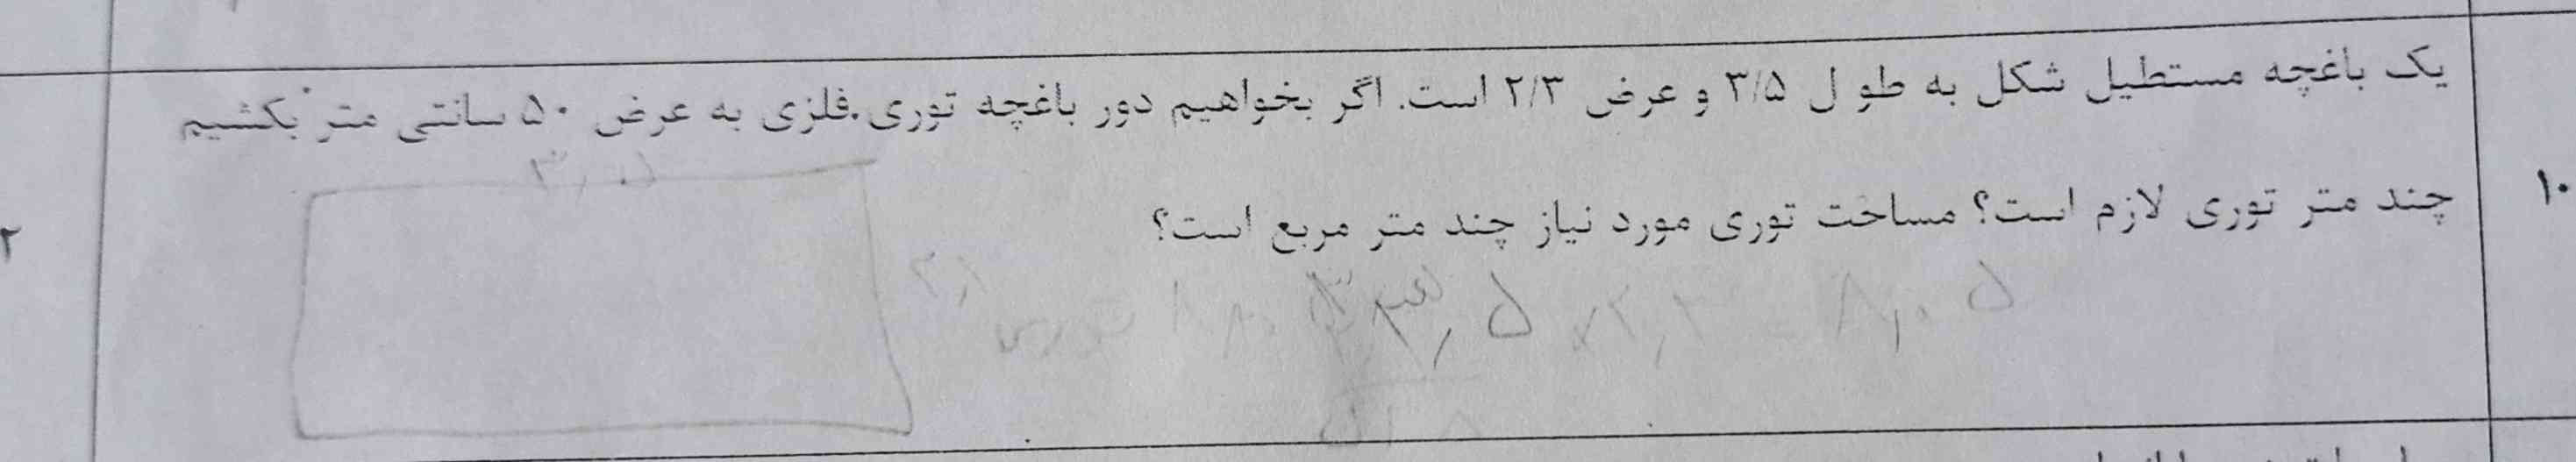 یک باغچه مستطیل شکل به طو ل ۳/۵ و عرض ۲/۳ است. اگر بخواهیم دور باغچه توری فلزی به عرض ۵۰ سانتی متر بکشیم
۱۰
چند متر توری لازم است؟ مساحت توری مورد نیاز چند متر مربع است؟
۲
۳٫۵
۳٫۵ × ۲٫۳ = ۸٫۰۵